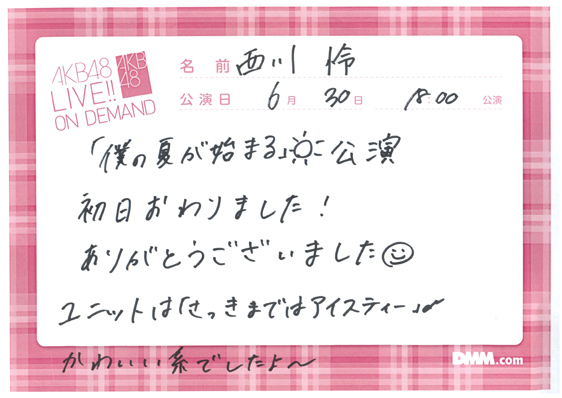 AKB48
LIVE!!
ON DEMAND
AKB
48
名 前 西川 怜
公演日 6月 30日 18:00 公演
「僕の夏が始まる」公演
初日おわりました!
ありがとうございました
ユニットは「さっきまではアイスティー」
かわいい系でしたよ〜
DMM.com